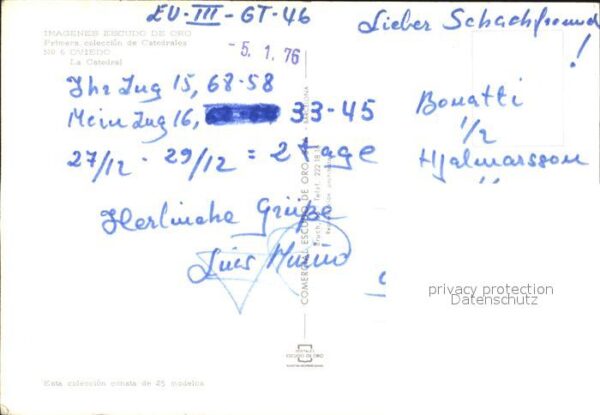 EU-III-GT-46
Lieber Schachfreund!
IMAGENES ESCUDO DE ORO
Primera colección de Catedrales
Nº 6 OVIEDO
La Catedral
- 5. 1. 76
Ihr Zug 15, 68-58
Mein Zug 16, 33-45
27/12 - 29/12 = 2 tage
Bonatti
1/2
Hjalmarsson
Herlinche Grüße
Luis Muño
COMERCIAL ESCUDO DE ORO
privacy protection
Datenschutz
ESCUDO DE ORO
Esta colección consta de 25 modelos